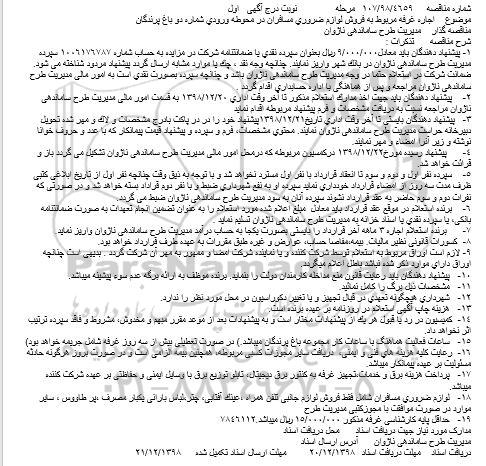 شماره مناقصه ۱۰۷/۹۸/۴۶۵۹ مرحله ۱ نوبت درج آگهی اول
موضوع اجاره غرفه مربوط به فروش لوازم ضروری مسافران در محوطه ورودی شماره دو باغ پرندگان
مناقصه گذار مدیریت طرح ساماندهی ناژوان
شرح مناقصه تذکرات :
۱- پیشنهاد دهندگان باید معادل ۹/۰۰۰/۰۰۰ ریال بعنوان سپرده نقدی یا ضمانتنامه شرکت در مزایده به حساب شماره ۱۰۰۶۱۷۶۷۸۷ سپرده
مدیریت طرح ساماندهی ناژوان در بانک شهر واریز نمایند. چنانچه وجه نقد ، چک یا موارد مشابه ارسال گردد پیشنهاد مردود شناخته می شود.
ضمانت شرکت در استعلام حتما در وجه مدیریت طرح ساماندهی ناژوان باشد و چنانچه سپرده بصورت نقدی است به امور مالی مدیریت طرح
ساماندهی ناژوان مراجعه و پس از هماهنگی با اداره حسابداری اقدام گردد .
۲- پیشنهاد دهندگان باید جهت اخذ مدارک استعلام مذکور تا آخر وقت اداری ۱۳۹۸/۱۲/۲۰ به قسمت امور مالی مدیریت طرح ساماندهی
ناژوان مراجعه نسبت به دریافت مشخصات و فرم پیشنهاد مربوطه اقدام نمایند
۳- پیشنهاد دهندگان بایستی تا آخر وقت اداری تاریخ ۱۳۹۸/۱۲/۲۱ پیشنهاد خود را در پاکت بادرج مشخصات و لاک و مهر شده تحویل
دبیرخانه حراست مدیریت طرح ساماندهی ناژوان نمایند. محتوی مشخصات، فرم و سپرده و پیشنهاد قیمت پیمانکار که با عدد و حروف خوانا
نوشته و زیر آنرا امضاء و مهر نمایند.
۴- پیشنهاد رسیده مورخ ۱۳۹۸/۱۲/۲۲ درکمسیون مربوطه که درمحل امور مالی مدیریت طرح ساماندهی ناژوان تشکیل می گردد باز و
قرائت خواهد شد.
۵- سپرده نفر اول و دوم و سوم تا انعقاد قرارداد با نفر اول مسترد نخواهد شد و با توجه به ذیق وقت چنانچه نفر اول از تاریخ ابلاغی کتبی
ظرف مدت سه روز از امضاء قرارداد خودداری نماید سپرده او به نفع شهرداری ضبط و با نفر دوم قرارداد بسته خواهد شد و در صورتی که
نفرات دوم و سوم حاضر به عقد قرارداد نشوند سپرده آنان به سود مدیریت طرح ساماندهی ناژوان ضبط می گردد.
۶- برنده استعلام در موقع عقد قرارداد باید معادل مبلغ اعلام شده مورد استعلام را به عنوان تضمین انجام تعهدات به صورت ضمانتنامه
بانکی، یا سپرده نقدی یا اسناد خزانه به مدیریت طرح ساماندهی ناژوان تسلیم نماید .
۷- برنده استعلام اجاره ۳ ماهه آخر قرارداد را بایستی بصورت یکجا به حساب درآمد مدیریت طرح ساماندهی ناژوان واریز نماید
۸- کسورات قانونی نظیر مالیات، بیمه،مفاصا حساب، عوارض و غیره طبق مقررات به عهده طرف قرارداد خواهد بود.
۹- لازم است اوراق مربوط به استعلام توسط شرکت کننده و یا نماینده شرکت امضا و ممهور به مهر آن شرکت گردد . بدیهی است چنانچه
اوراق دارای موارد ذکر شد نباشد باطل اعلام میگردد.
۱۰- پیشنهاد دهندگان باید رعایت قانون منع مداخله کارمندان دولت را بنماید. برنده موظف به ارائه برگه عدم سوء پیشینه میباشد.
۱۱- مشخصات ذیل برگ را کامل نمائید.
۱۲- شهرداری هیچگونه تعهدی در قبال تجهیز و یا تغییر دکوراسیون در محل مورد نظر را ندارد.
۱۳- هزینه چاپ آگهی استعلام در روزنامه بر عهده برنده است .
۱۴- کمیسیون در رد یا قبول هر یک از پیشنهادات مختار است و به پیشنهادات بعد از موعد مقرر مبهم و مخدوش، مشروط و فاقد سپرده ترتیب
اثر نخواهد داد.
۱۵- ساعات فعالیت هماهنگ با ساعات کار مجموعه باغ پرندگان میباشد. ( در صورت تعطیلی بیش از سه روز غرفه شامل جریمه خواهد بود)
۱۶- رعایت کلیه هزینه های فنی و ایمنی، دریافت سایر مجوزات کسبی مربوطه، همچنین بیمه الزامی است و در صورت بروز هرگونه حادثه
مسئولیت بر عهده پیمانکار میباشد.
۱۷- پرداخت هزینه برق و خدمات،تجهیز غرفه به کنتور برق دیجیتال، تابلو توزیع برق با وسایل ایمنی و حفاظتی بر عهده شرکت کننده
میباشد.
۱۸- لوازم ضروری مسافران شامل فقط فروش لوازم جانبی تلفن همراه ، عینک آفتابی، چتر،لباس بارانی یکبار مصرف ،پر طاووس ، سایر
موارد در صورت موافقت با مجوزکتبی مدیریت طرح
۱۹- حداقل پایه کارشناسی غرفه مذکور ۱۵/۰۰۰/۰۰۰ ریال میباشد.۷۸۴۶۱۱۲
مدارک مورد نیاز جهت دریافت اسناد محل دریافت اسناد
مدیریت طرح ساماندهی ناژوان آدرس ارسال اسناد
مهلت دریافت اسناد ۲۰/۱۲/۱۳۹۸ مهلت ارسال اسناد تکمیل شده ۲۱/۱۲/۱۳۹۸